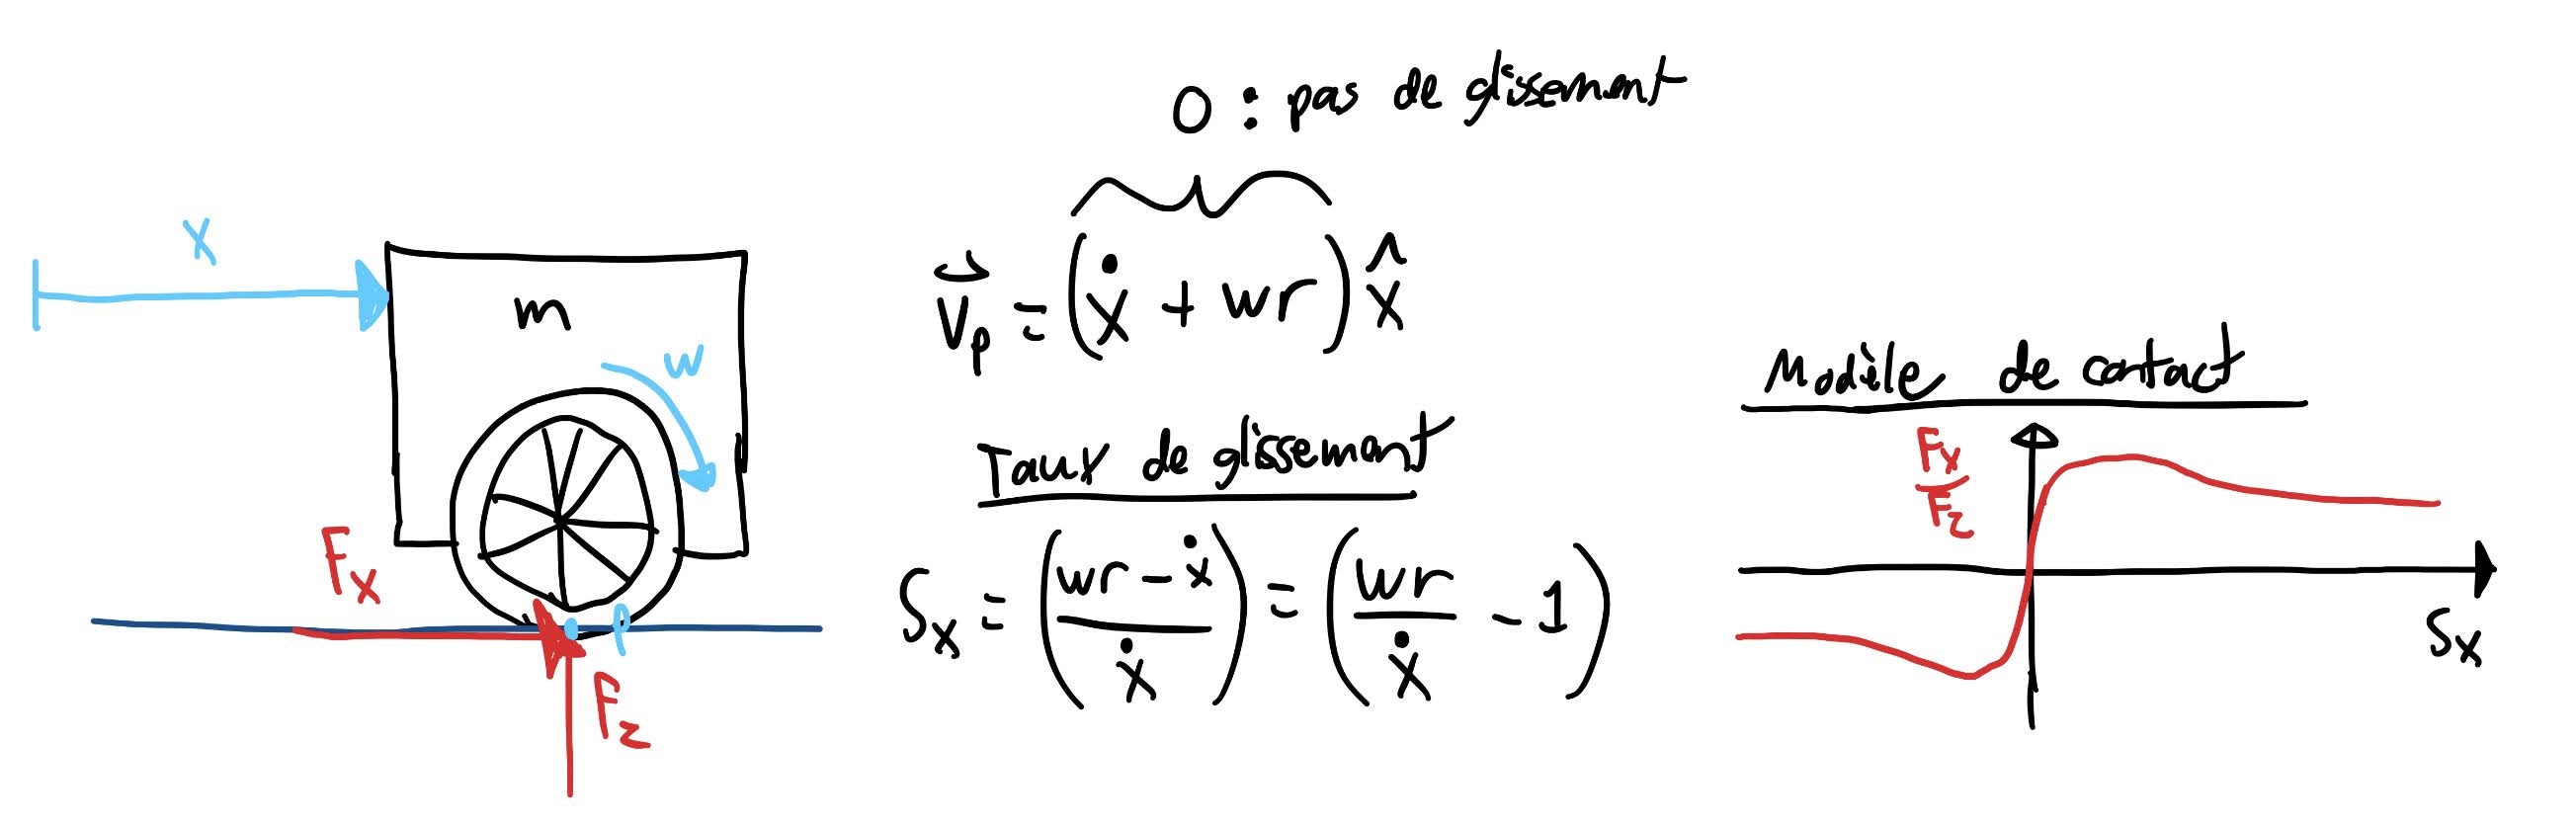 x
m
w
F_x
P
F_z
0 : pas de glissement
\vec{V}_p = (ẋ + wr) x̂
Taux de glissement
S_x = ((wr - ẋ)/ẋ) = (wr/ẋ - 1)
Modèle de contact
F_x/F_z
S_x